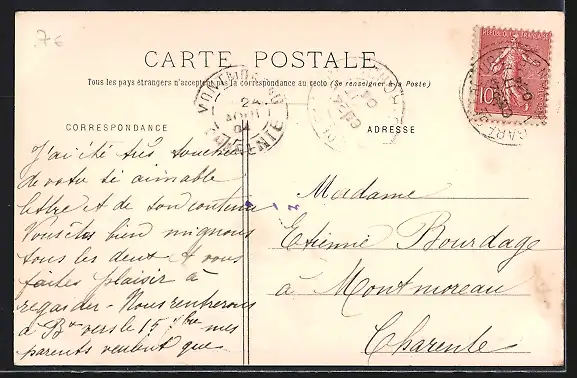 7€
CARTE POSTALE
Tous les pays étrangers n'acceptent pas la correspondance au recto (Se renseigner à la Poste)
CORRESPONDANCE
ADRESSE
10
2A
04
CHARENTE
J'ai été très touchée
de votre si aimable
lettre et de son contenu
Vous êtes bien mignons
tous les deux et vous
faites plaisir à
regarder - Nous rentrerons
à Bx vers le 15 7bre mes
parents veulent que
Madame
Etienne Bourdage
à Montmoreau
Charente